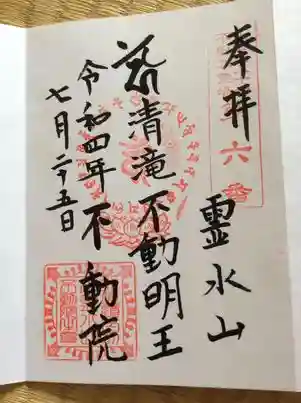 奉拝
六番
霊水山
清滝不動明王
不動院
令和四年
七月二十五日